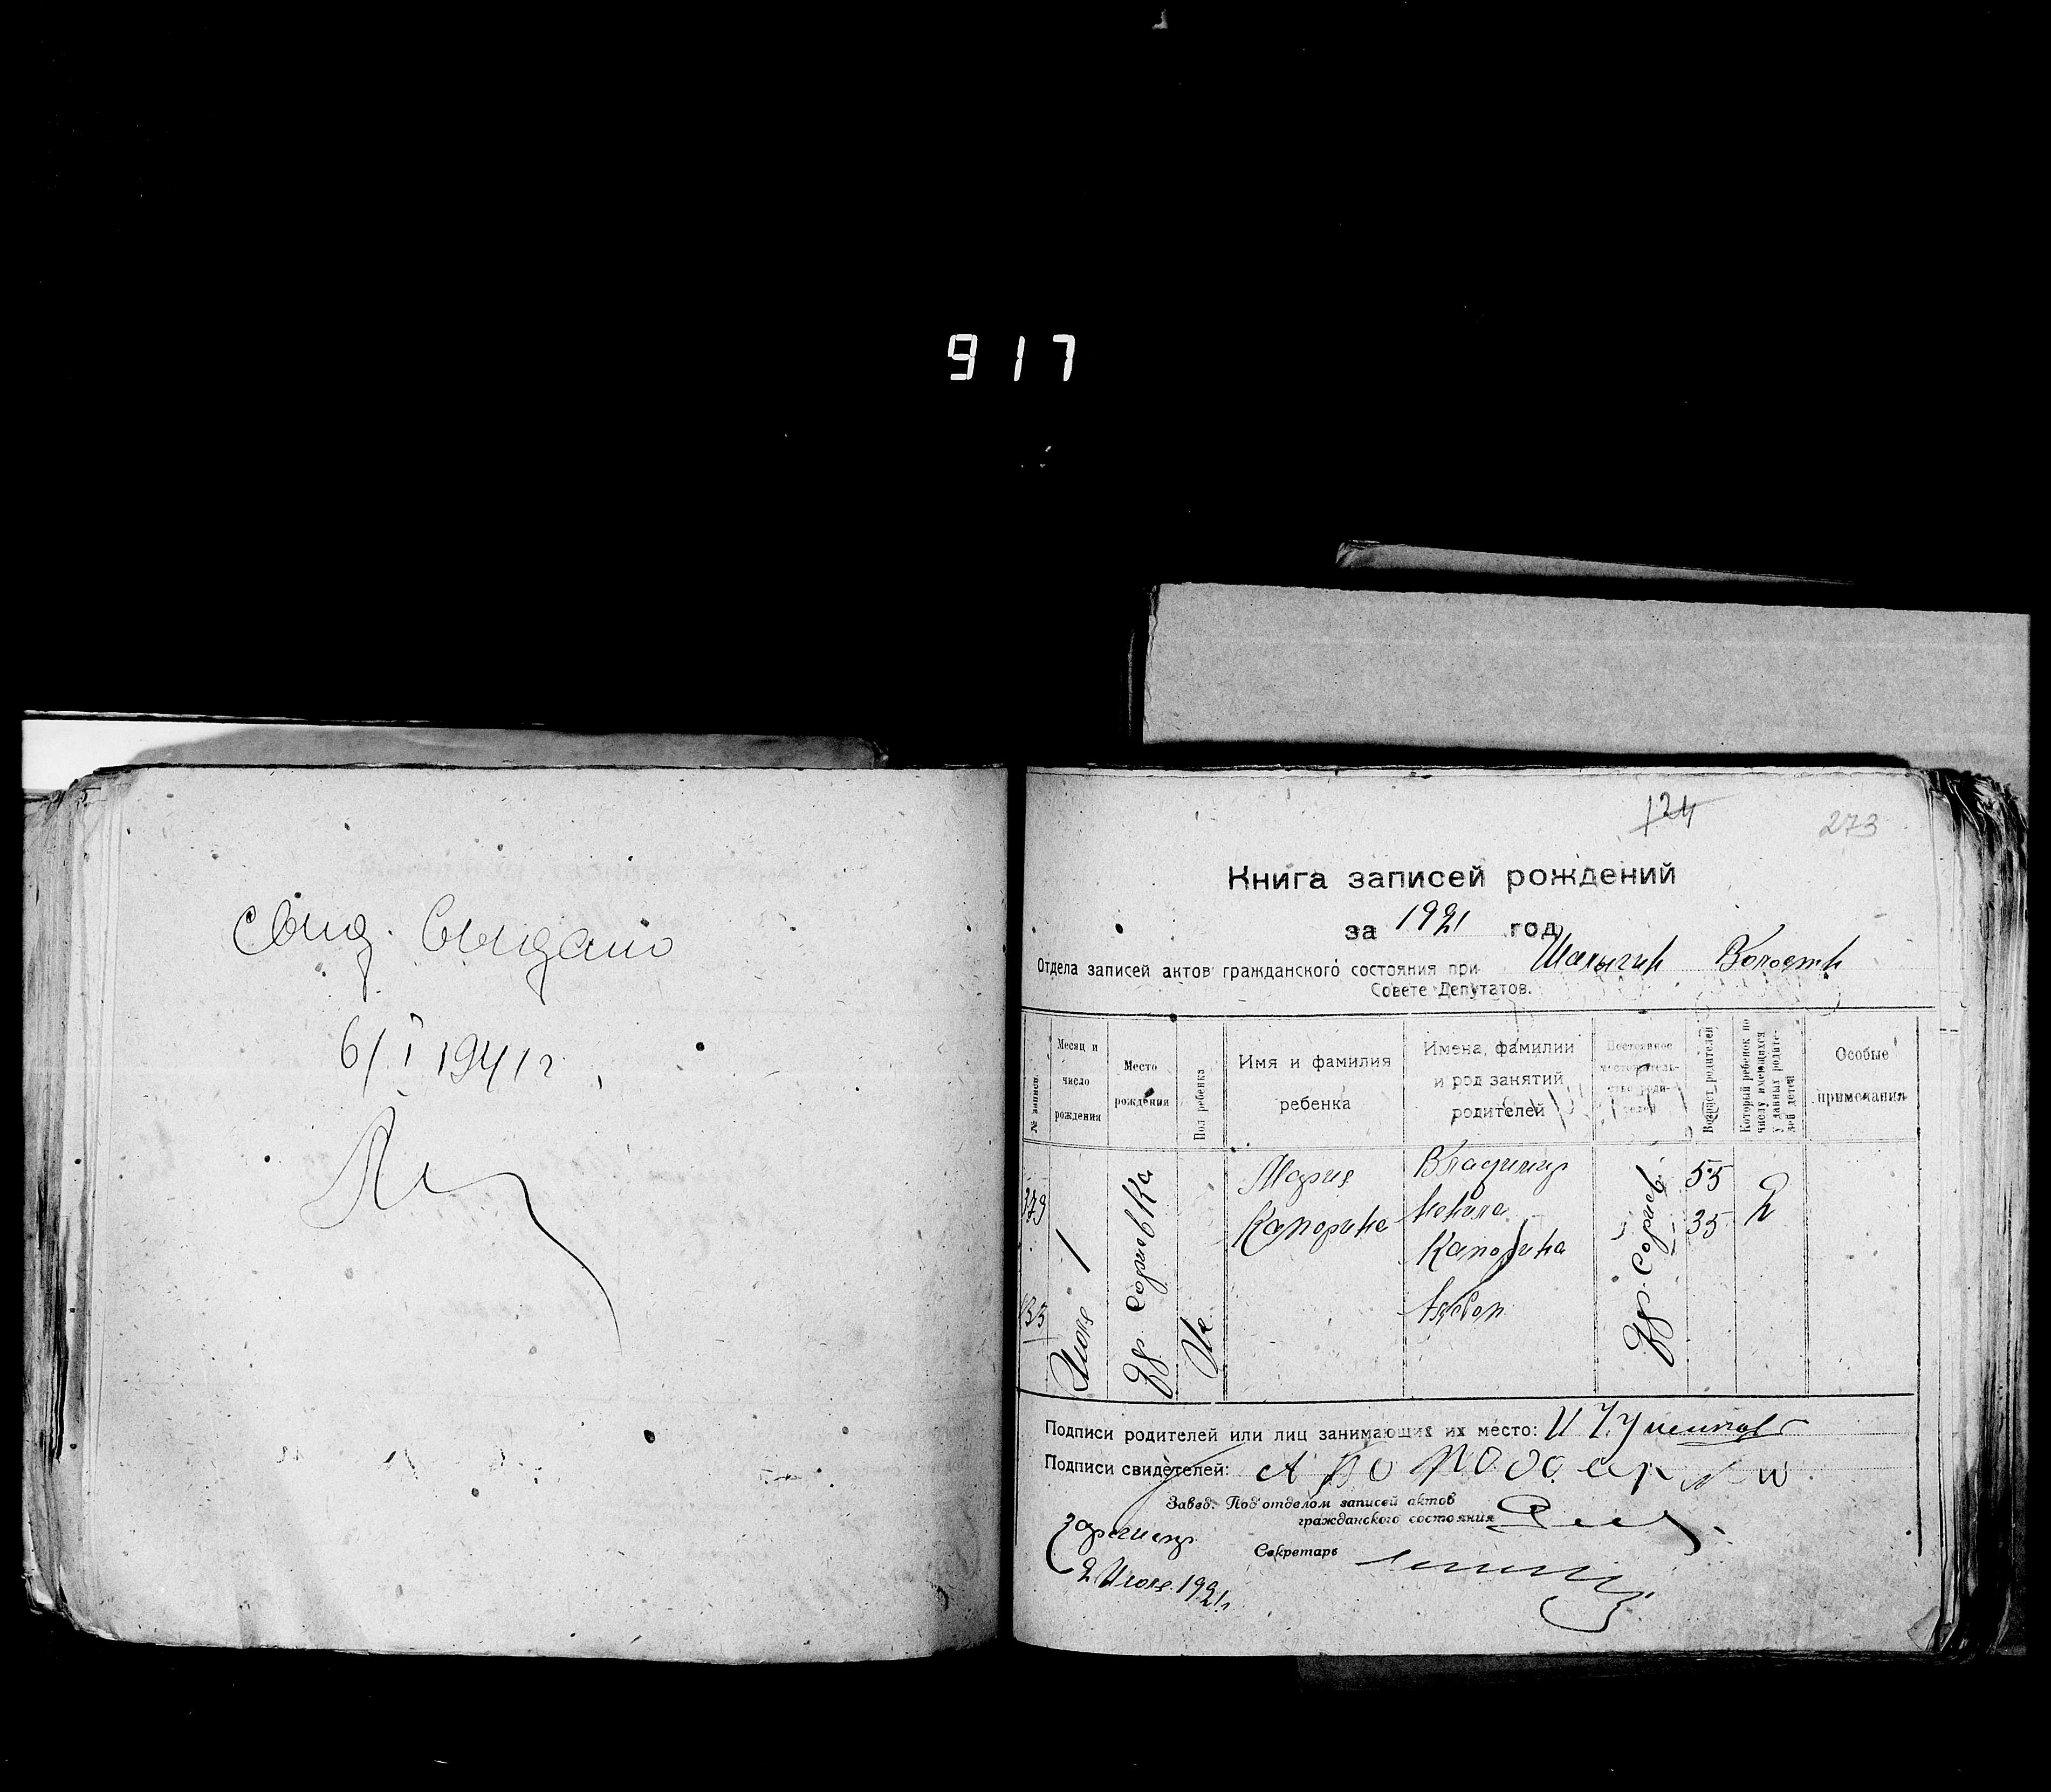 917
Свид. выдано
6/I 1941 г.
124
273
Книга записей рождений
за 1921 год
Отдела записей актов гражданского состояния при Шалыгин Волостн
Совете Депутатов.
№ записи.
Месяц и число рождения
Место рождения
Пол ребенка
Имя и фамилия ребенка
Имена, фамилии и род занятий родителей
Постоянное местожительство родителей
Возраст родителей
Который ребенок по числу имеющихся у данных родителей детей
Особые примечания
379
133
Июля 1
др. Софиовка
Мария
Капорина
Владимир
Капорина
др. Софиов.
55
35
2
Подписи родителей или лиц занимающих их место:
Подписи свидетелей:
Завед. Под'отделом записей актов
гражданского состояния
Секретарь
2 Июля 1921 г.